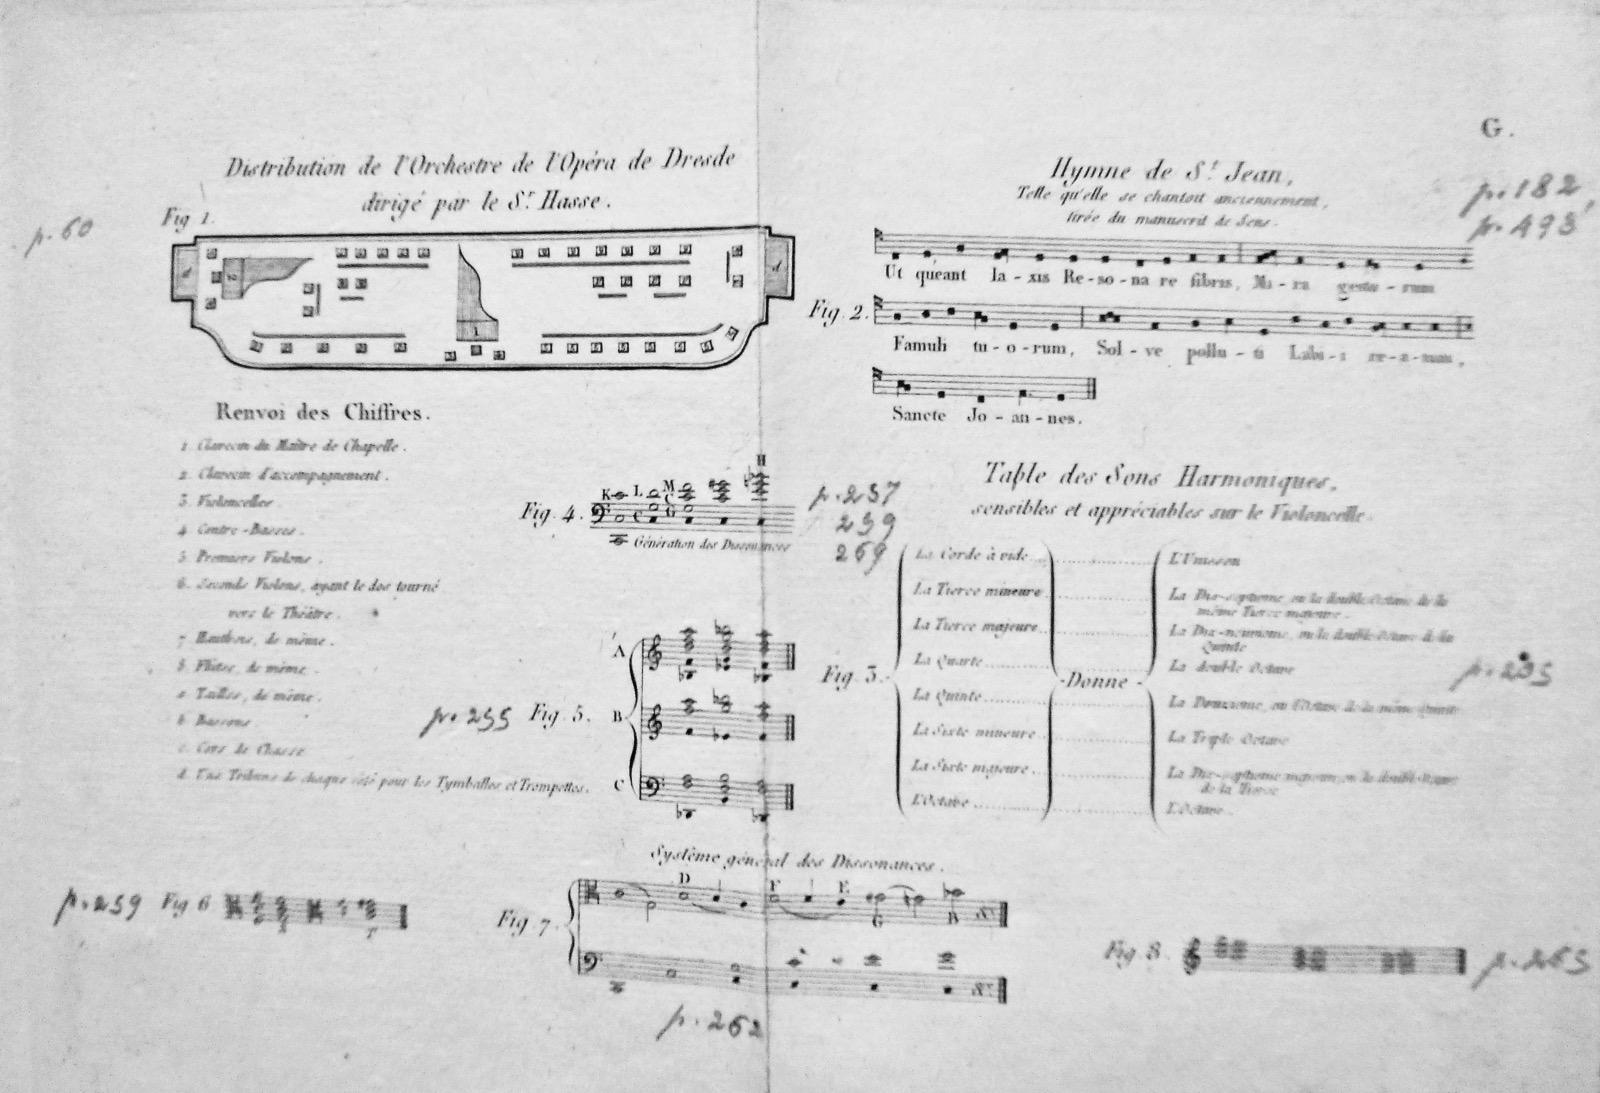 G.
Distribution de l'Orchestre de l'Opéra de Dresde
dirigé par le Sr. Hasse.
p. 60
Fig 1.
d
2
1
d
Renvoi des Chiffres.
1. Clavecin du Maître de Chapelle.
2. Clavecin d'accompagnement.
3. Violoncelles.
4. Contre-Basses.
5. Premiers Violons.
6. Seconds Violons, ayant le dos tourné
vers le Théâtre.
7. Hautbois, de même.
8. Flûtes, de même.
a. Tailles, de même.
b. Bassons.
c. Cors de Chasse
d. Une Tribune de chaque côté pour les Tymballes et Trompettes.
Hymne de St. Jean,
Telle qu'elle se chantoit anciennement,
tirée du manuscrit de Sens.
p. 182,
p. 493
Fig. 2.
Ut quéant la-xis Re-so-na re fibris, Mi-ra gesto-rum
Famuli tu-o-rum, Sol-ve pollu-ti Labi-i re-a-tum,
Sancte Jo-an-nes.
Fig. 4.
K L M H
C G C
Génération des Dissonances
p. 237
239
269
Table des Sons Harmoniques,
sensibles et appréciables sur le Violoncelle.
Fig. 3.
La Corde à vide L'Unisson
La Tierce mineure La Dix-septieme, ou la double Octave de la
même Tierce majeure.
La Tierce majeure La Dix-neuvieme, ou la double Octave de la
Quinte
La Quarte La double Octave
Donne
La Quinte La Douzieme, ou l'Octave de la même Quinte
La Sixte mineure La Triple Octave
La Sixte majeure La Dix-septieme majeure, ou la double Octave
de la Tierce
L'Octave L'Octave.
p. 235
p. 255
Fig. 5.
A
B
C
Système général des Dissonances.
p. 259
Fig 6
Fig. 7.
D F E
G B
p. 262
Fig. 8.
p. 265